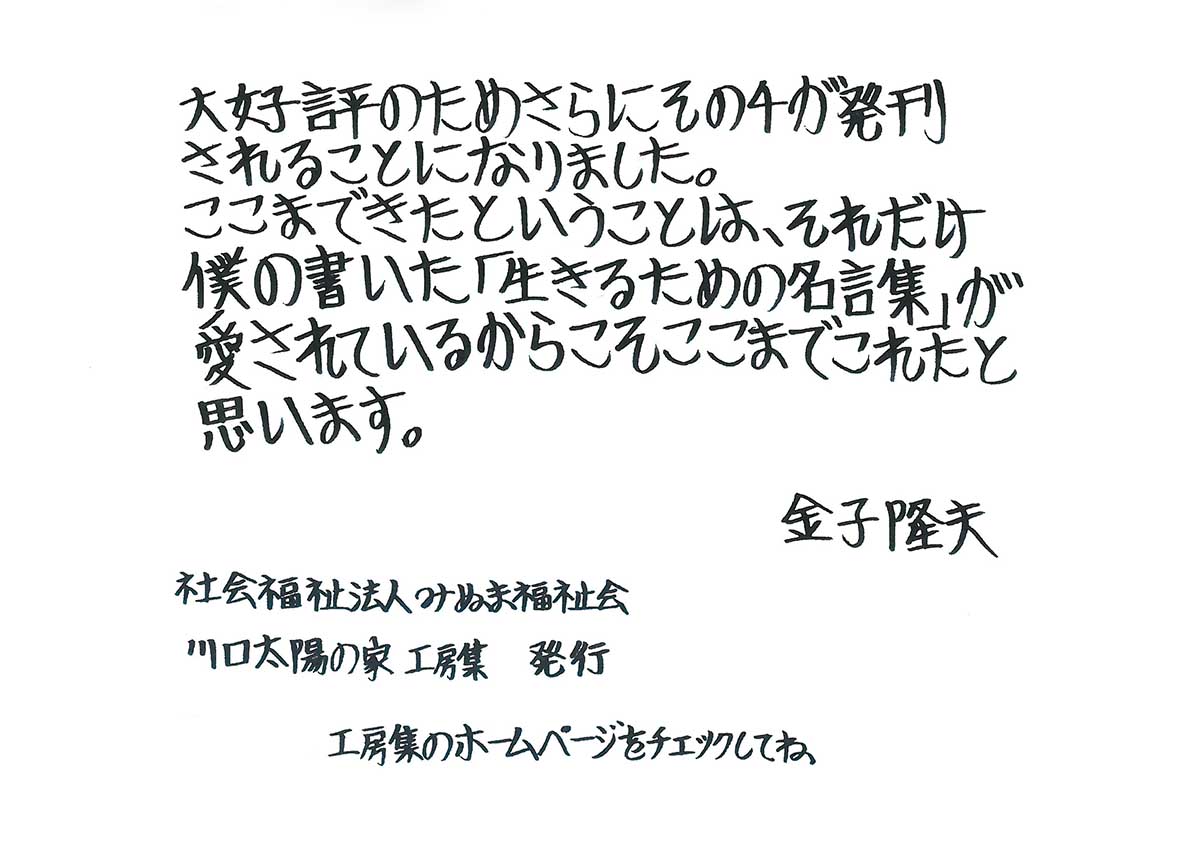 大好評のためさらにその4が発刊
されることになりました。
ここまできたということは、それだけ
僕の書いた「生きるための名言集」が
愛されているからこそここまでこれたと
思います。
金子隆夫
社会福祉法人みぬま福祉会
川口太陽の家 工房集 発行
工房集のホームページをチェックしてね、